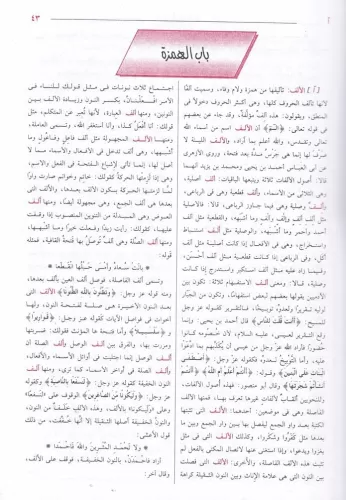 ٤٣
باب الهمزة
[أ] الألف: تأليفها من همزة ولام وفاء، وسميت ألفًا
لأنها تألف الحروف كلها، وهي أكثر الحروف دخولاً في
المنطق، ويقولون: هذه ألف مؤلَّفة. وقد جاء عن بعضهم
في قوله تعالى: ﴿الٓمٓ﴾ أن الألف اسم من أسماء الله
تعالى وتقدس، والله أعلم بما أراد، والألف اللينة لا
صرف لها إنما هي جَرْسُ مدَّة بعد فتحة، وروى الأزهري
عن أبي العباس أحمد بن يحيى ومحمد بن يزيد أنهما
قالا: أصول الألفات ثلاثة ويتبعها الباقيات: ألف أصلية،
وهي في الثلاثي من الأسماء، وألف قطعية وهي في الرباعي،
وألف وصلية وهي فيما جاوز الرباعي، قالا: فالأصلية
مثل ألف ألِفٍ وإلْفٍ وألْفٍ وما أشبهه، والقطعية مثل ألف
أحمد وأحمر وما أشبهه، والوصلية مثل ألف استنباط
واستخراج، وهي في الأفعال إذا كانت أصلية مثل ألف
أكل، وفي الرباعي إذا كانت قطعية مثل ألف أحسن،
وفيما زاد عليه مثل ألف استكبر واستدرج إذا كانت
وصلية، قالا: ومعنى ألف الاستفهام ثلاثة: تكون بين
الآدميين يقولها بعضهم لبعض استفهامًا، وتكون من الجبَّار
لوليه تقريرًا ولعدوه توبيخًا، فالتقرير كقوله عز وجل
للمسيح: ﴿أأنت قلت للناس﴾؛ قال أحمد بن يحيى: وإنما
وقع التقرير لعيسى، عليه السلام، لأن خصومه كانوا
حضورًا فأراد الله عز وجل من عيسى أن يكذبهم بما ادعوا
عليه، وأما التوبيخ لعدوه فكقوله عز وجل: ﴿أصطفى
البنات على البنين﴾ وقوله: ﴿أأنتم أعلم أم الله﴾ ﴿أأنتم
أنشأتم شجرتها﴾؛ وقال أبو منصور: فهذه أصول الألفات،
وللنحويين ألقاب لألفات غيرها تعرف بها، فمنها الألف
الفاصلة وهي في موضعين: أحدهما الألف التي تثبتها
الكتبة بعد واو الجمع ليفصل بها بين واو الجمع وبين ما
بعدها مثل كفروا وشكروا، وكذلك الألف التي في مثل
يغزوا ويدعوا، وإذا استغني عنها لاتصال المكني بالفعل لم
تثبت هذه الألف الفاصلة، والأخرى الألف التي فصلت
بين النون التي هي علامة الإناث وبين النون الثقيلة كراهة
اجتماع ثلاث نونات في مثل قولك للنساء في
الأمر افعلنانِّ، بكسر النون وزيادة الألف بين
النونين؛ ومنها ألف العبارة، لأنها تعبر عن المتكلم، مثل
قولك: أنا أفعل كذا، وأنا أستغفر الله، وتسمى العاملة،
ومنها الألف المجهولة مثل ألف فاعل وفاعول وما
أشبهها، وهي ألف تدخل في الأفعال والأسماء مما لا
أصل لها، إنما تأتي لإشباع الفتحة في الفعل والاسم،
وهي إذا لزمتها الحركة كقولك: خاتم وخواتم صارت واوًا
لما لزمتها الحركة بسكون الألف بعدها، والألف التي
بعدها هي ألف الجمع، وهي مجهولة أيضًا، ومنها ألف
العوض وهي المبدلة من التنوين المنصوب إذا وقفت
عليها كقولك: رأيت زيدًا وفعلت خيرًا وما أشبهها،
ومنها ألف الصلة وهي ألف توصل بها فتحة القافية، فمثله
قوله:
بانت سعاد وأمسى حبلها انقطعا
وتسمى ألف الفاصلة، فوصل ألف العين بألف بعدها،
ومنه قوله عز وجل: ﴿وتظنون بالله الظنونا﴾ الألف التي
بعد النون الأخيرة هي صلة لفتحة النون، ولها
أخوات في فواصل الآيات كقوله عز وجل: ﴿قواريرا﴾
و﴿سلسبيلا﴾ وأما فتحة ها المؤنث فقولك: ضربتها
ومررت بها، والفرق بين ألف الوصل وألف الصلة أن
ألف الوصل إنما اجتلبت في أوائل الأسماء والأفعال،
وألف الصلة في أواخر الأسماء كما ترى، ومنها ألف
النون الخفيفة كقوله عز وجل: ﴿لنسفعا بالناصية﴾ وكقوله
عز وجل: ﴿وليكونا من الصاغرين﴾ الوقوف على لنسفعا
وعلى وليكونا بالألف، وهذه الألف خلف من النون،
والنون الخفيفة أصلها الثقيلة إلا أنها خففت، من ذلك
قول الأعشى:
ولا تحمد المثرين والله فاحمدا
أراد فاحمدن، بالنون الخفيفة، فوقف على الألف،
وقال آخر: